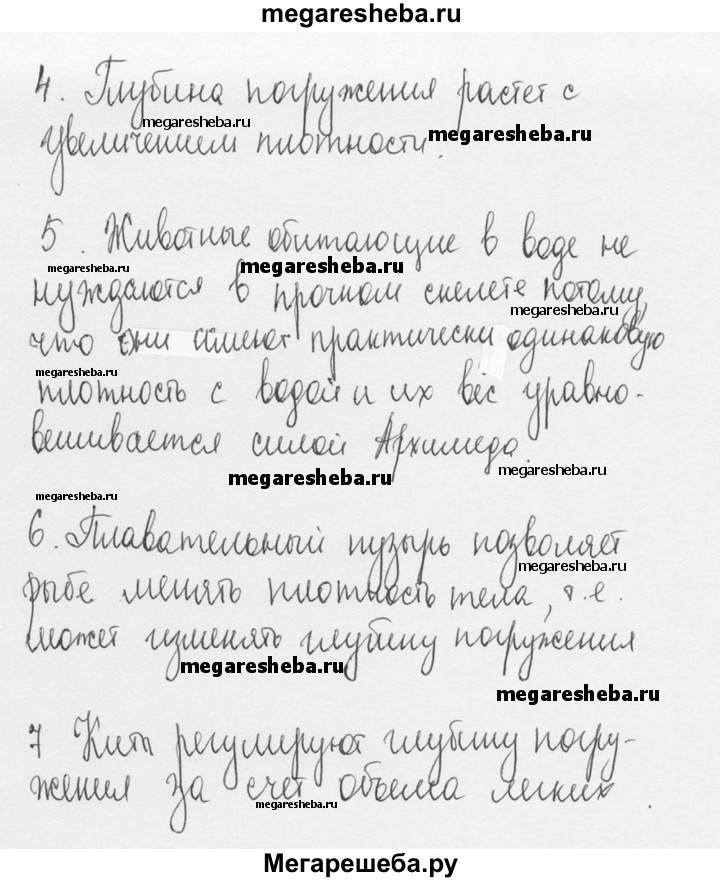 megaresheba.ru
4. Глубина погружения растет с
megaresheba.ru
megaresheba.ru
увеличением плотности.
5. Животные обитающие в воде не
megaresheba.ru
megaresheba.ru
нуждаются в прочном скелете потому,
megaresheba.ru
что они имеют практически одинаковую
megaresheba.ru
плотность с водой и их вес уравно-
вешивается силой Архимеда.
megaresheba.ru
megaresheba.ru
megaresheba.ru
6. Плавательный пузырь позволяет
megaresheba.ru
рыбе менять плотность тела, т.е.
может изменять глубину погружения
megaresheba.ru
megaresheba.ru
7 Киты регулируют глубину погру-
жения за счет объема легких.
megaresheba.ru
Мегарешеба.ру